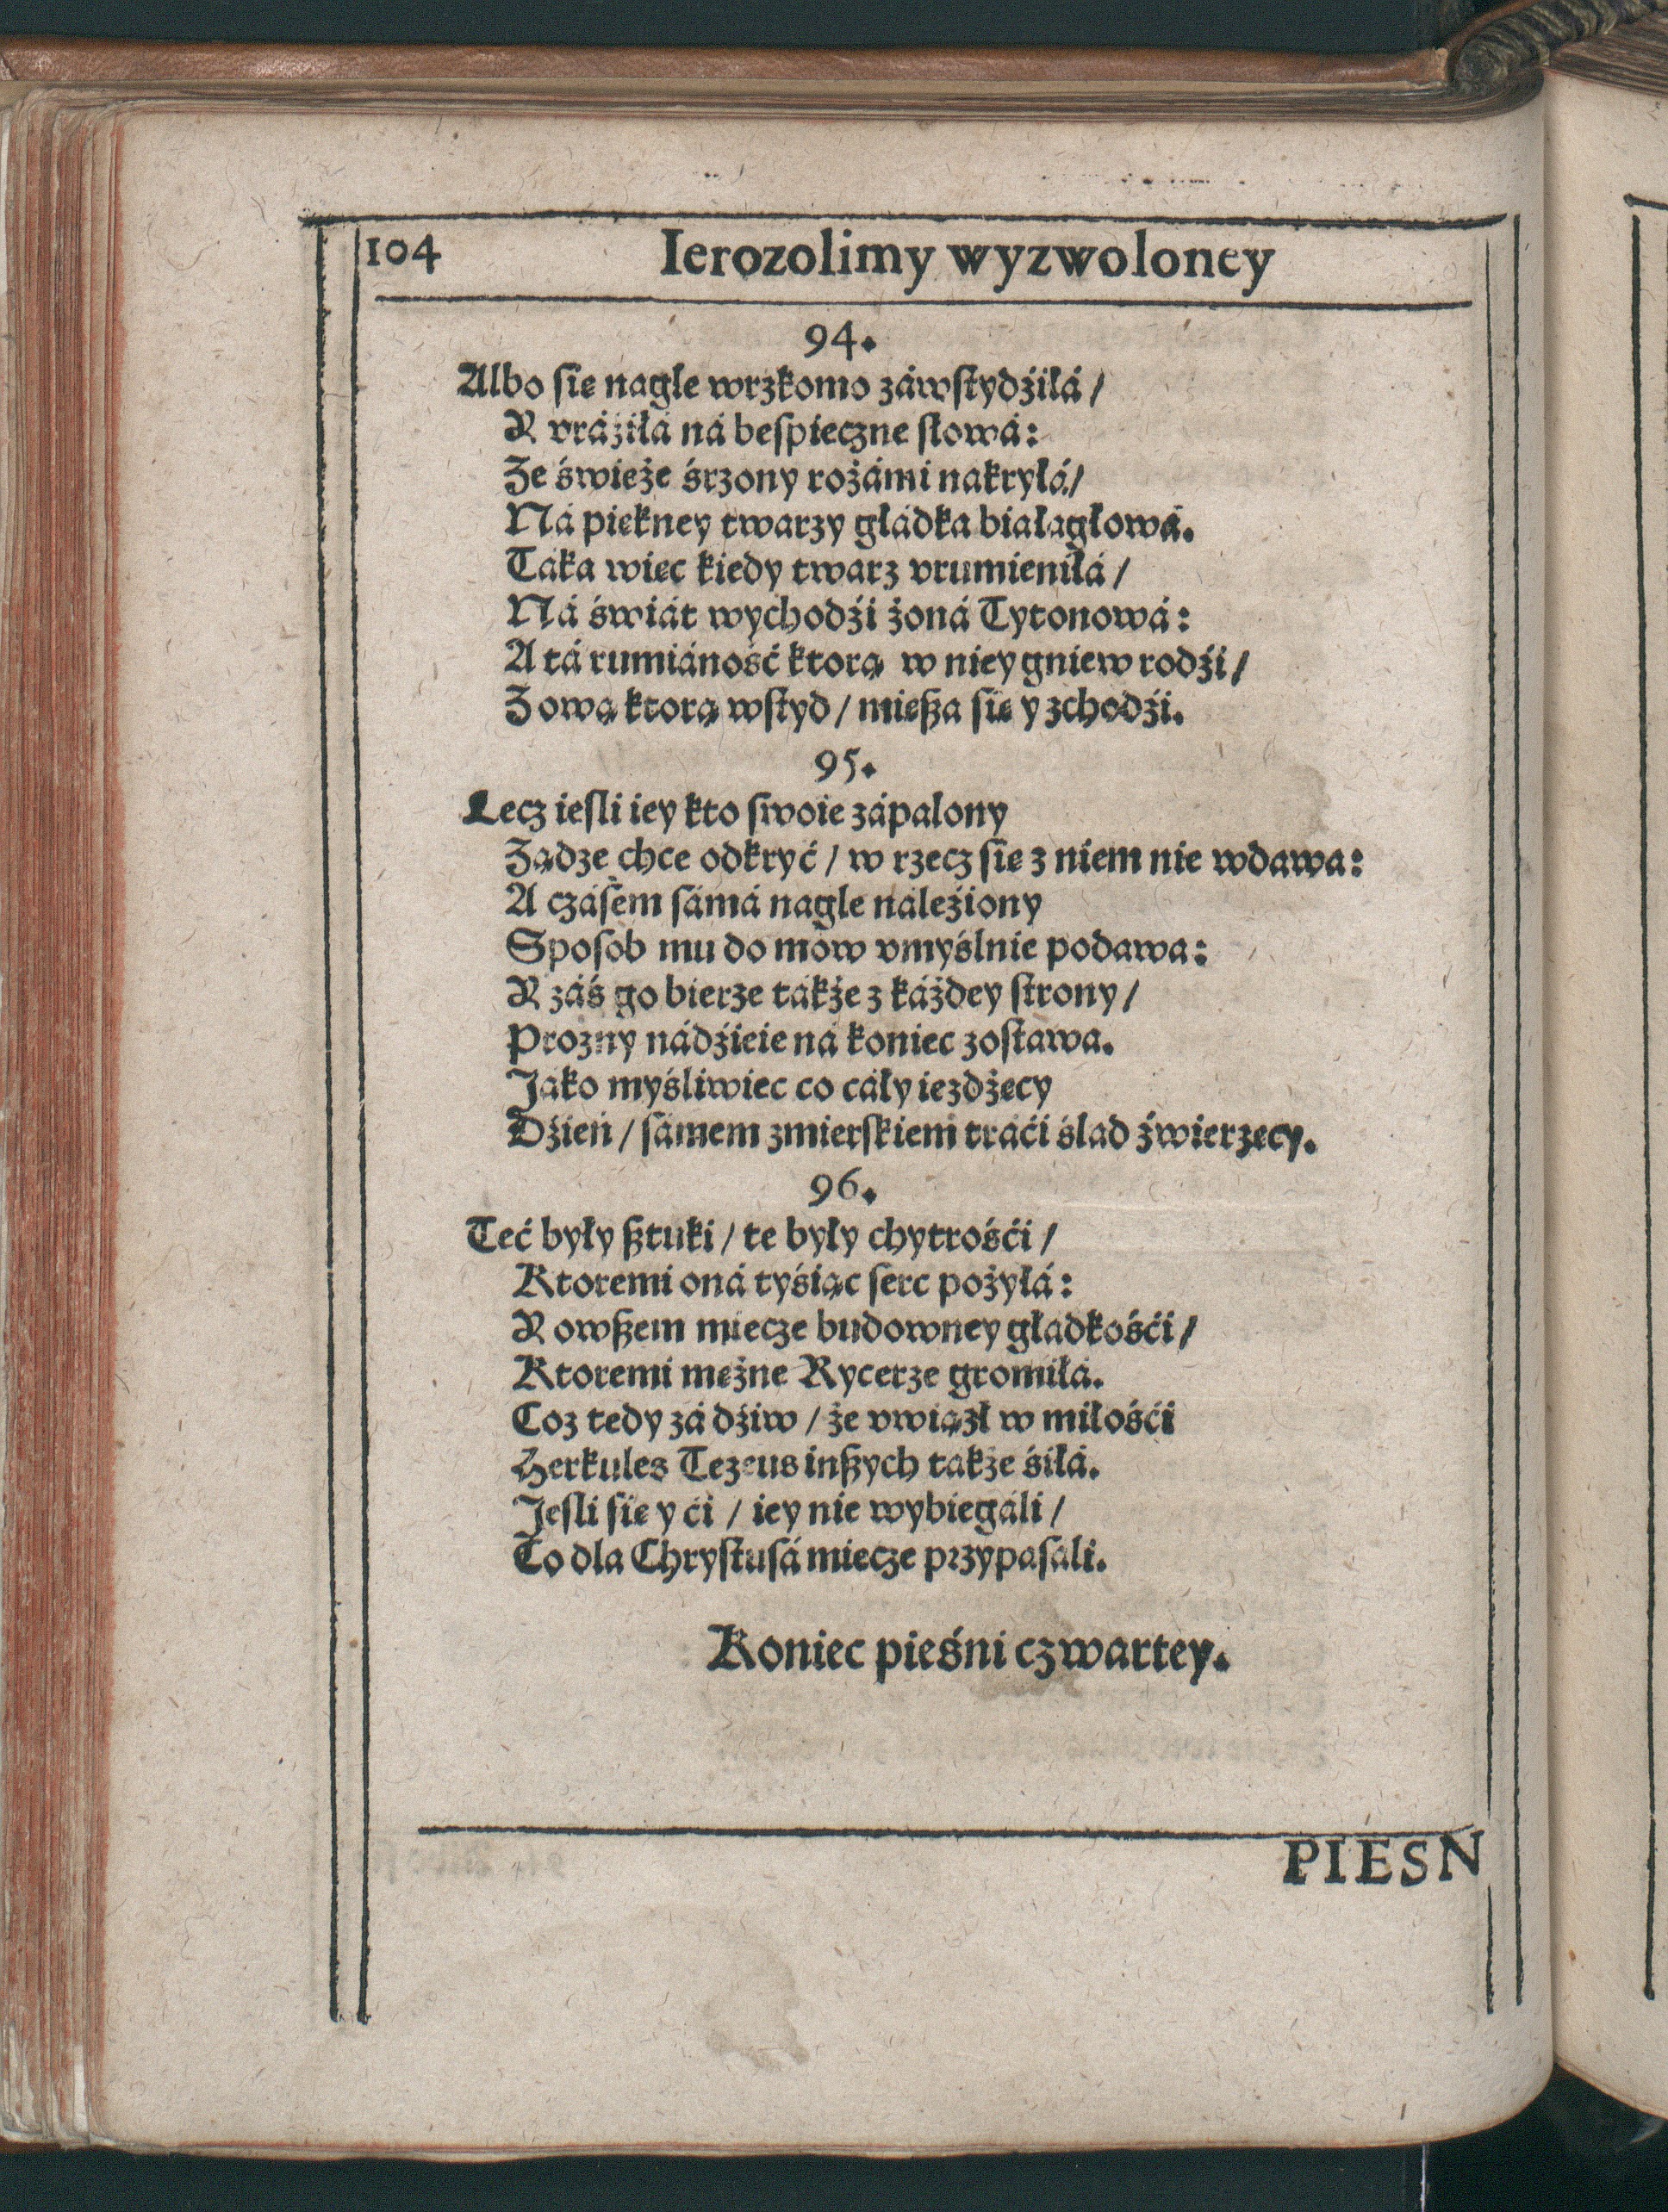 104 Ierozolimy wyzwoloney
94.
Albo ſie nagle wrzkomo záwſtydźiłá /
Y vráźiłá ná beſpieczne ſłowá:
Ze świeże śrzony rożámi nakryłá/
Ná piekney twarzy głádka białagłowá.
Táka wiec kiedy twarz vrumieniłá /
Ná świát wychodźi żoná Tytonowá:
A tá rumiáność ktorą w niey gniew rodźi /
Z ową ktorą wſtyd / mießa ſie y zchodźi.
95.
Lecz ieſli iey kto ſwoie zápalony
Ządze chce odkryć / w rzecz ſie z niem nie wdawa:
A czáſem ſámá nagle náleźiony
Spoſob mu do mow vmyślnie podawa:
Y záś go bierze tákże z káżdey ſtrony /
Prozny nádźieie ná koniec zoſtawa.
Jáko myśliwiec co cáły iezdżecy
Dźień / ſámem zmierſkiem tráći ślad źwierzecy.
96.
Teć były ßtuki / te były chytrośći /
Ktoremi oná tyśiąc ſerc pożyłá:
Y owßem miecze budowney głádkośći /
Ktoremi meżne Rycerze gromiłá.
Coz tedy zá dźiw / że vwiązł w miłośći
Herkules Tezeus inßych tákże śiłá.
Jeſli ſie y ći / iey nie wybiegáli /
Co dla Chryſtuſá miecze przypaſáli.
Koniec pieśni czwartey.
PIESN